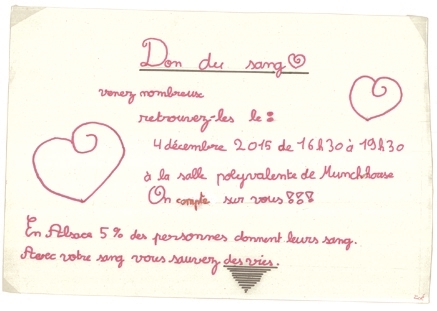 Don du sang
venez nombreux
retrouvez-les le :
4 décembre 2015 de 16h30 à 19h30
à la salle polyvalente de Munchhouse
On compte sur vous !!!
En Alsace 5% des personnes donnent leurs sang.
Avec votre sang vous sauvez des vies.